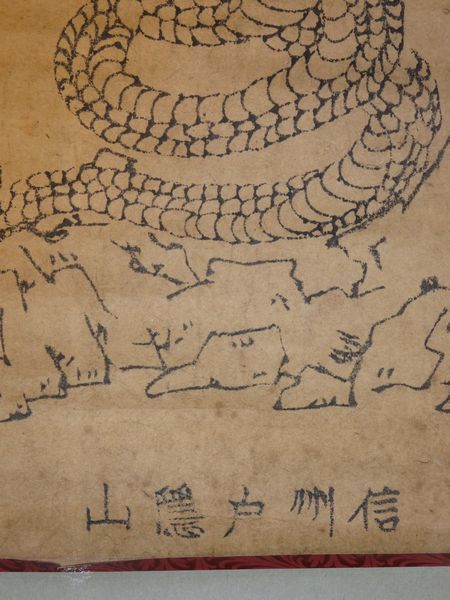 信州戸隱山